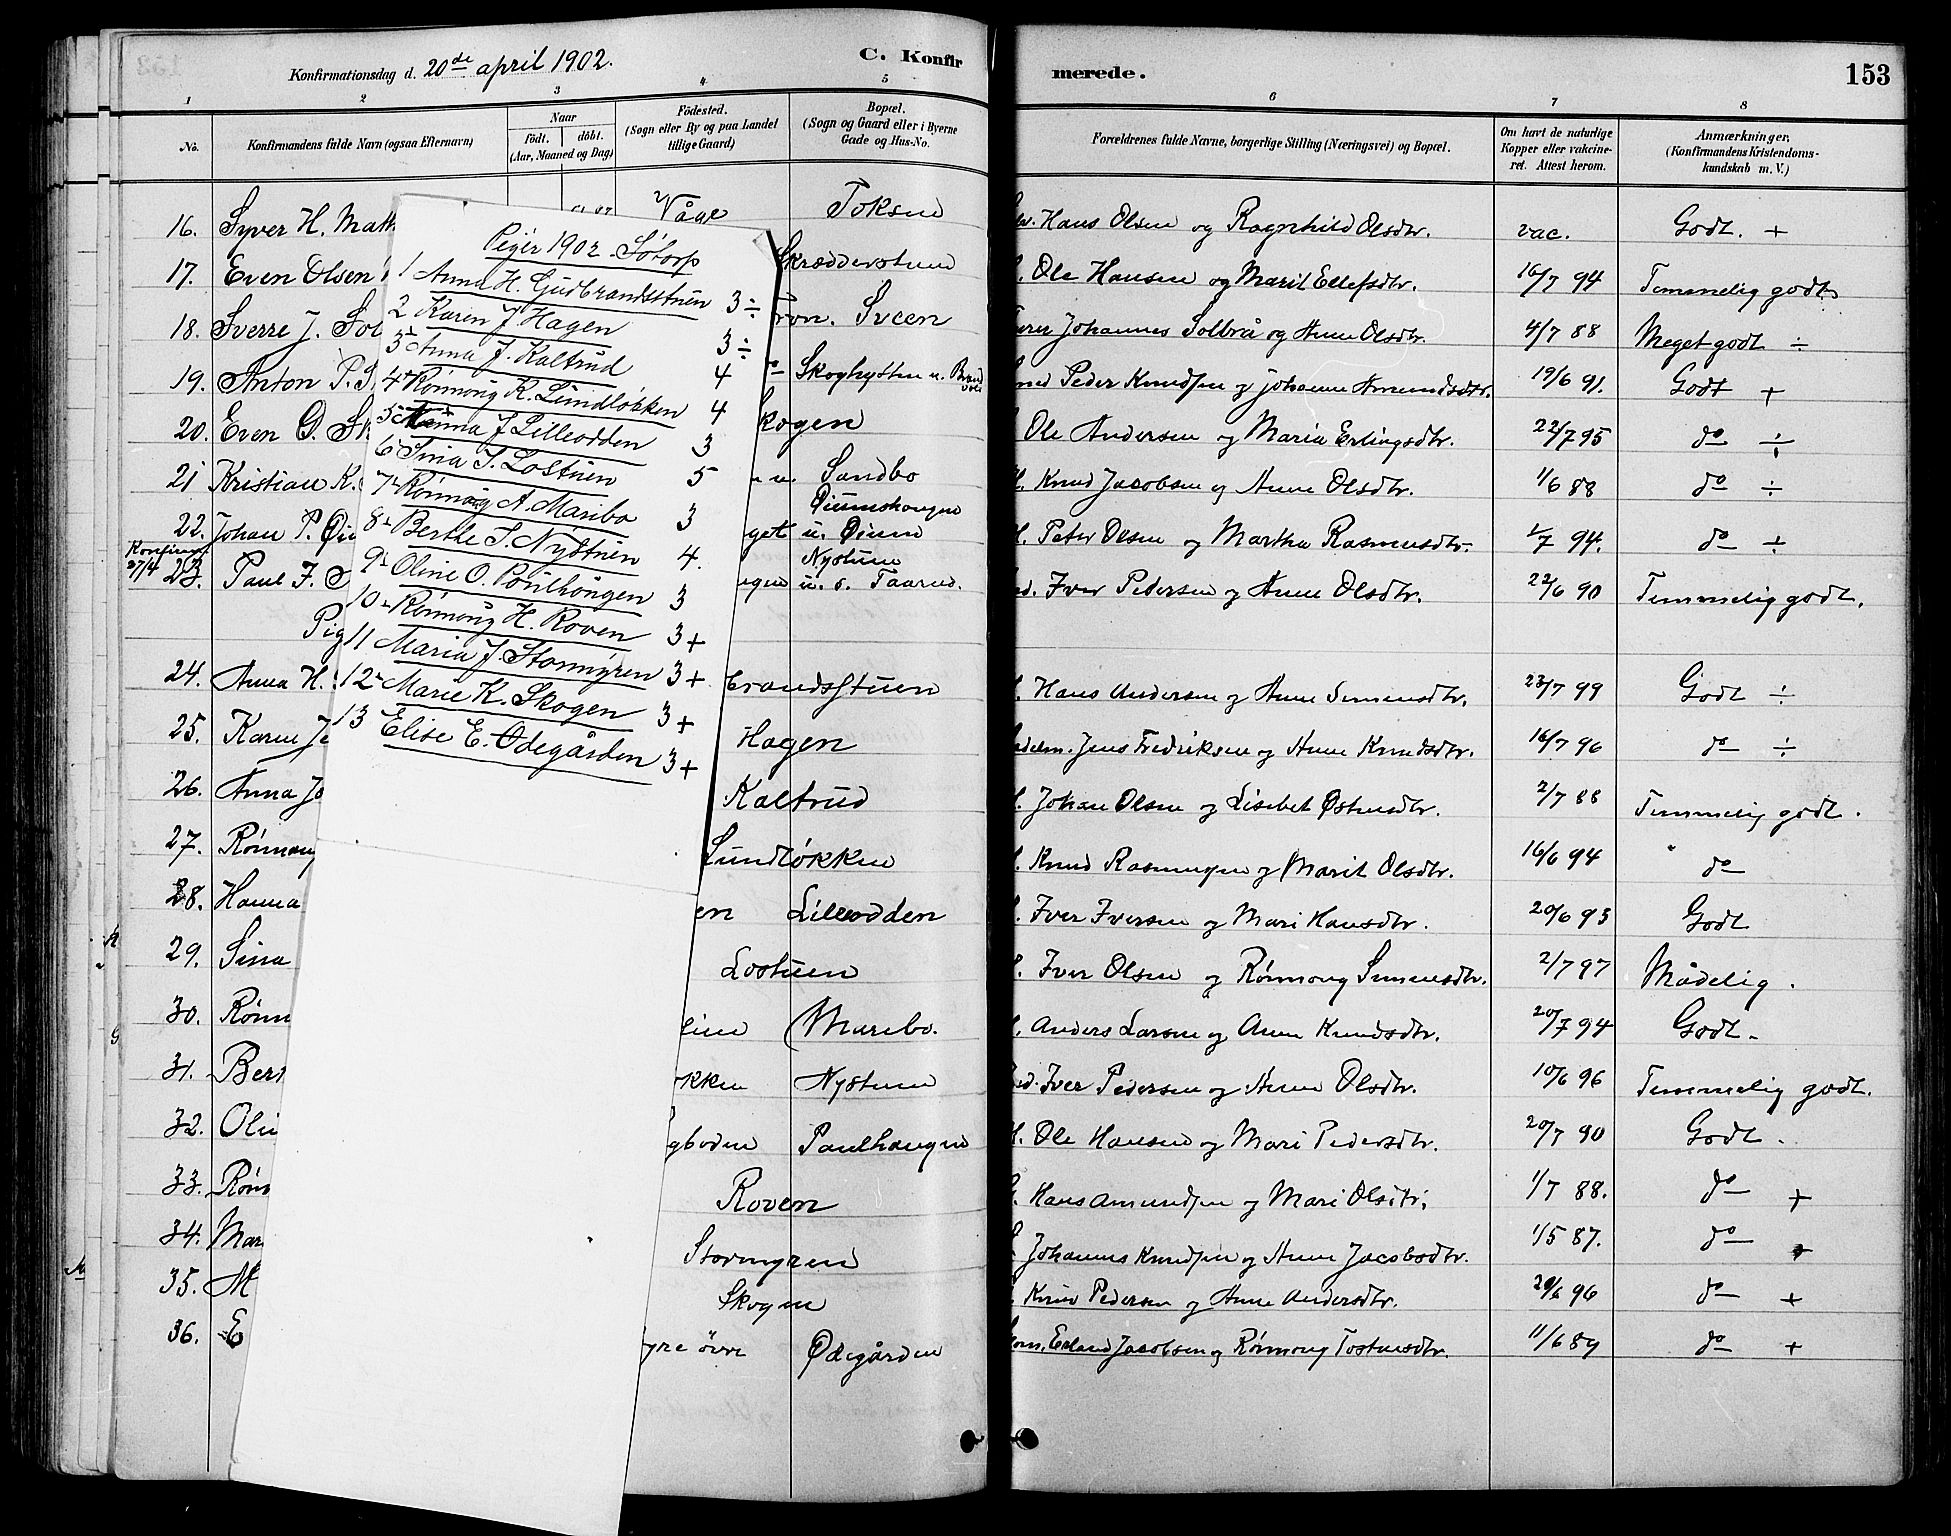 Konfirmationsdag d. 20de april 1902.
C. Konfir
merede.
153
1 2 3 4 5 6 7 8
No.
Konfirmandens fulde Navn (ogsaa Efternavn)
Naar
födt. döbt.
(Aar, Maaned og Dag)
Födested.
(Sogn eller By og paa Landet
tillige Gaard)
Bopæl.
(Sogn og Gaard eller i Byerne
Gade og Hus-No.
Forældrenes fulde Navne, borgerlige Stilling (Næringsvei) og Bopæl.
Om havt de naturlige
Kopper eller vakcine-
ret. Attest herom.
Anmærkninger,
(Konfirmandens Kristendoms-
kundskab m. V.)
16. Syver H. Våge Toksen Hans Olsen og Ragnhild Olsdtr. vac. Godt. +
17. Even Olsen Skrædderstuen Ole Hansen og Marit Ellefsdtr. 16/7 94 Temmelig godt
18. Sverre J. Fron. Sveen Johannes Solbrå og Anne Olsdtr. 4/7 88 Meget godt ÷
19. Anton P. Skoghytten u. Peder Knudsen og Johanne Amundsdtr. 19/6 91. Godt +
20. Even O. Skogen Ole Andersen og Maria Erlingsdtr. 22/7 95 do ÷
21 Kristian K. u. Sandbo Knud Jacobsen og Anne Olsdtr. 1/6 88 do ÷
22. Johan P. Øiumshaugen u. Øium Peter Olsen og Martha Rasmusdtr. 94. do ÷
Konfirm. 27/4
23. Paul I. Nystuen u. s. Taarud. Iver Pedersen og Anne Olsdtr. 22/6 90 Temmelig godt.
Pig
24. Anna H. brandsstuen Hans Andersen og Anne Simensdtr. 23/7 99 Godt ÷
25. Karen Je Hagen Jens Fredriksen og Anne Knudsdtr. 16/7 96 do ÷
26. Anna Jo Kaltrud Johan Olsen og Lisebet Østensdtr. 2/7 88 Temmelig godt.
27. Rönnaug Lundløkken Knud Rasmussen og Marit Olsdtr. 16/6 94 do
28. Hanna en Lilleodden Iver Iversen og Mari Hansdtr. 20/6 93 Godt
29. Sina Lostuen Iver Olsen og Rønnoug Simensdtr. 2/7 97 Mådelig.
30. Rønn Maribo. Anders Larsen og Anne Knudsdtr. 20/7 94 Godt.
31. Bert kken Nystuen Iver Pedersen og Anne Olsdtr. 10/6 96 Temmelig godt.
32. Olin gboden Paulhaugen Ole Hansen og Mari Pedersdtr. 20/7 90 Godt.
33. Røn Roven Hans Amundsen og Mari Olsdtr. 1/7 88. do +
34. Mar Stormyren Johannes Knudsen og Anne Jacobsdtr. 1/5 87. do +
35. M Skogen Knud Pedersen og Anne Andersdtr. 20/6 96 do +
36. E yre övre Ødegården Erland Jacobsen og Rønnoug Tostensdtr. 11/6 89 do +
Piger 1902. Sötorp
1 Anna H. Gudbrandsstuen 3÷
2 Karen J Hagen 3÷
3 Anna J. Kaltrud 4
4 Rönnoug K. Lundløkken 4
5 Hanna J Lilleodden 3
6 Sina I. Lostuen 5
7 Rönnoug A. Maribo 3
8 Berthe I. Nystuen 4.
9 Oline O. Poulhougen 3
10 Rönnoug H. Roven 3+
11 Maria J. Stormyren 3+
12 Marie K. Skogen 3+
13 Elise E. Ødegården 3+